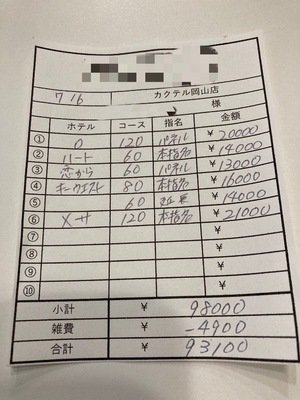 カクテル岡山店
7 16 様
ホテル コース 指名 金額
① O 120 パネル ¥ 20000
② ハート 60 本指名 ¥ 14000
③ 恋から 60 パネル ¥ 13000
④ キーウエスト 80 本指名 ¥ 16000
⑤ 60 ¥ 14000
⑥ メサ 120 本指名 ¥ 21000
⑦ ¥
⑧ ¥
⑨ ¥
⑩ ¥
小計 ¥ 98000
雑費 ¥ -4900
合計 ¥ 93100